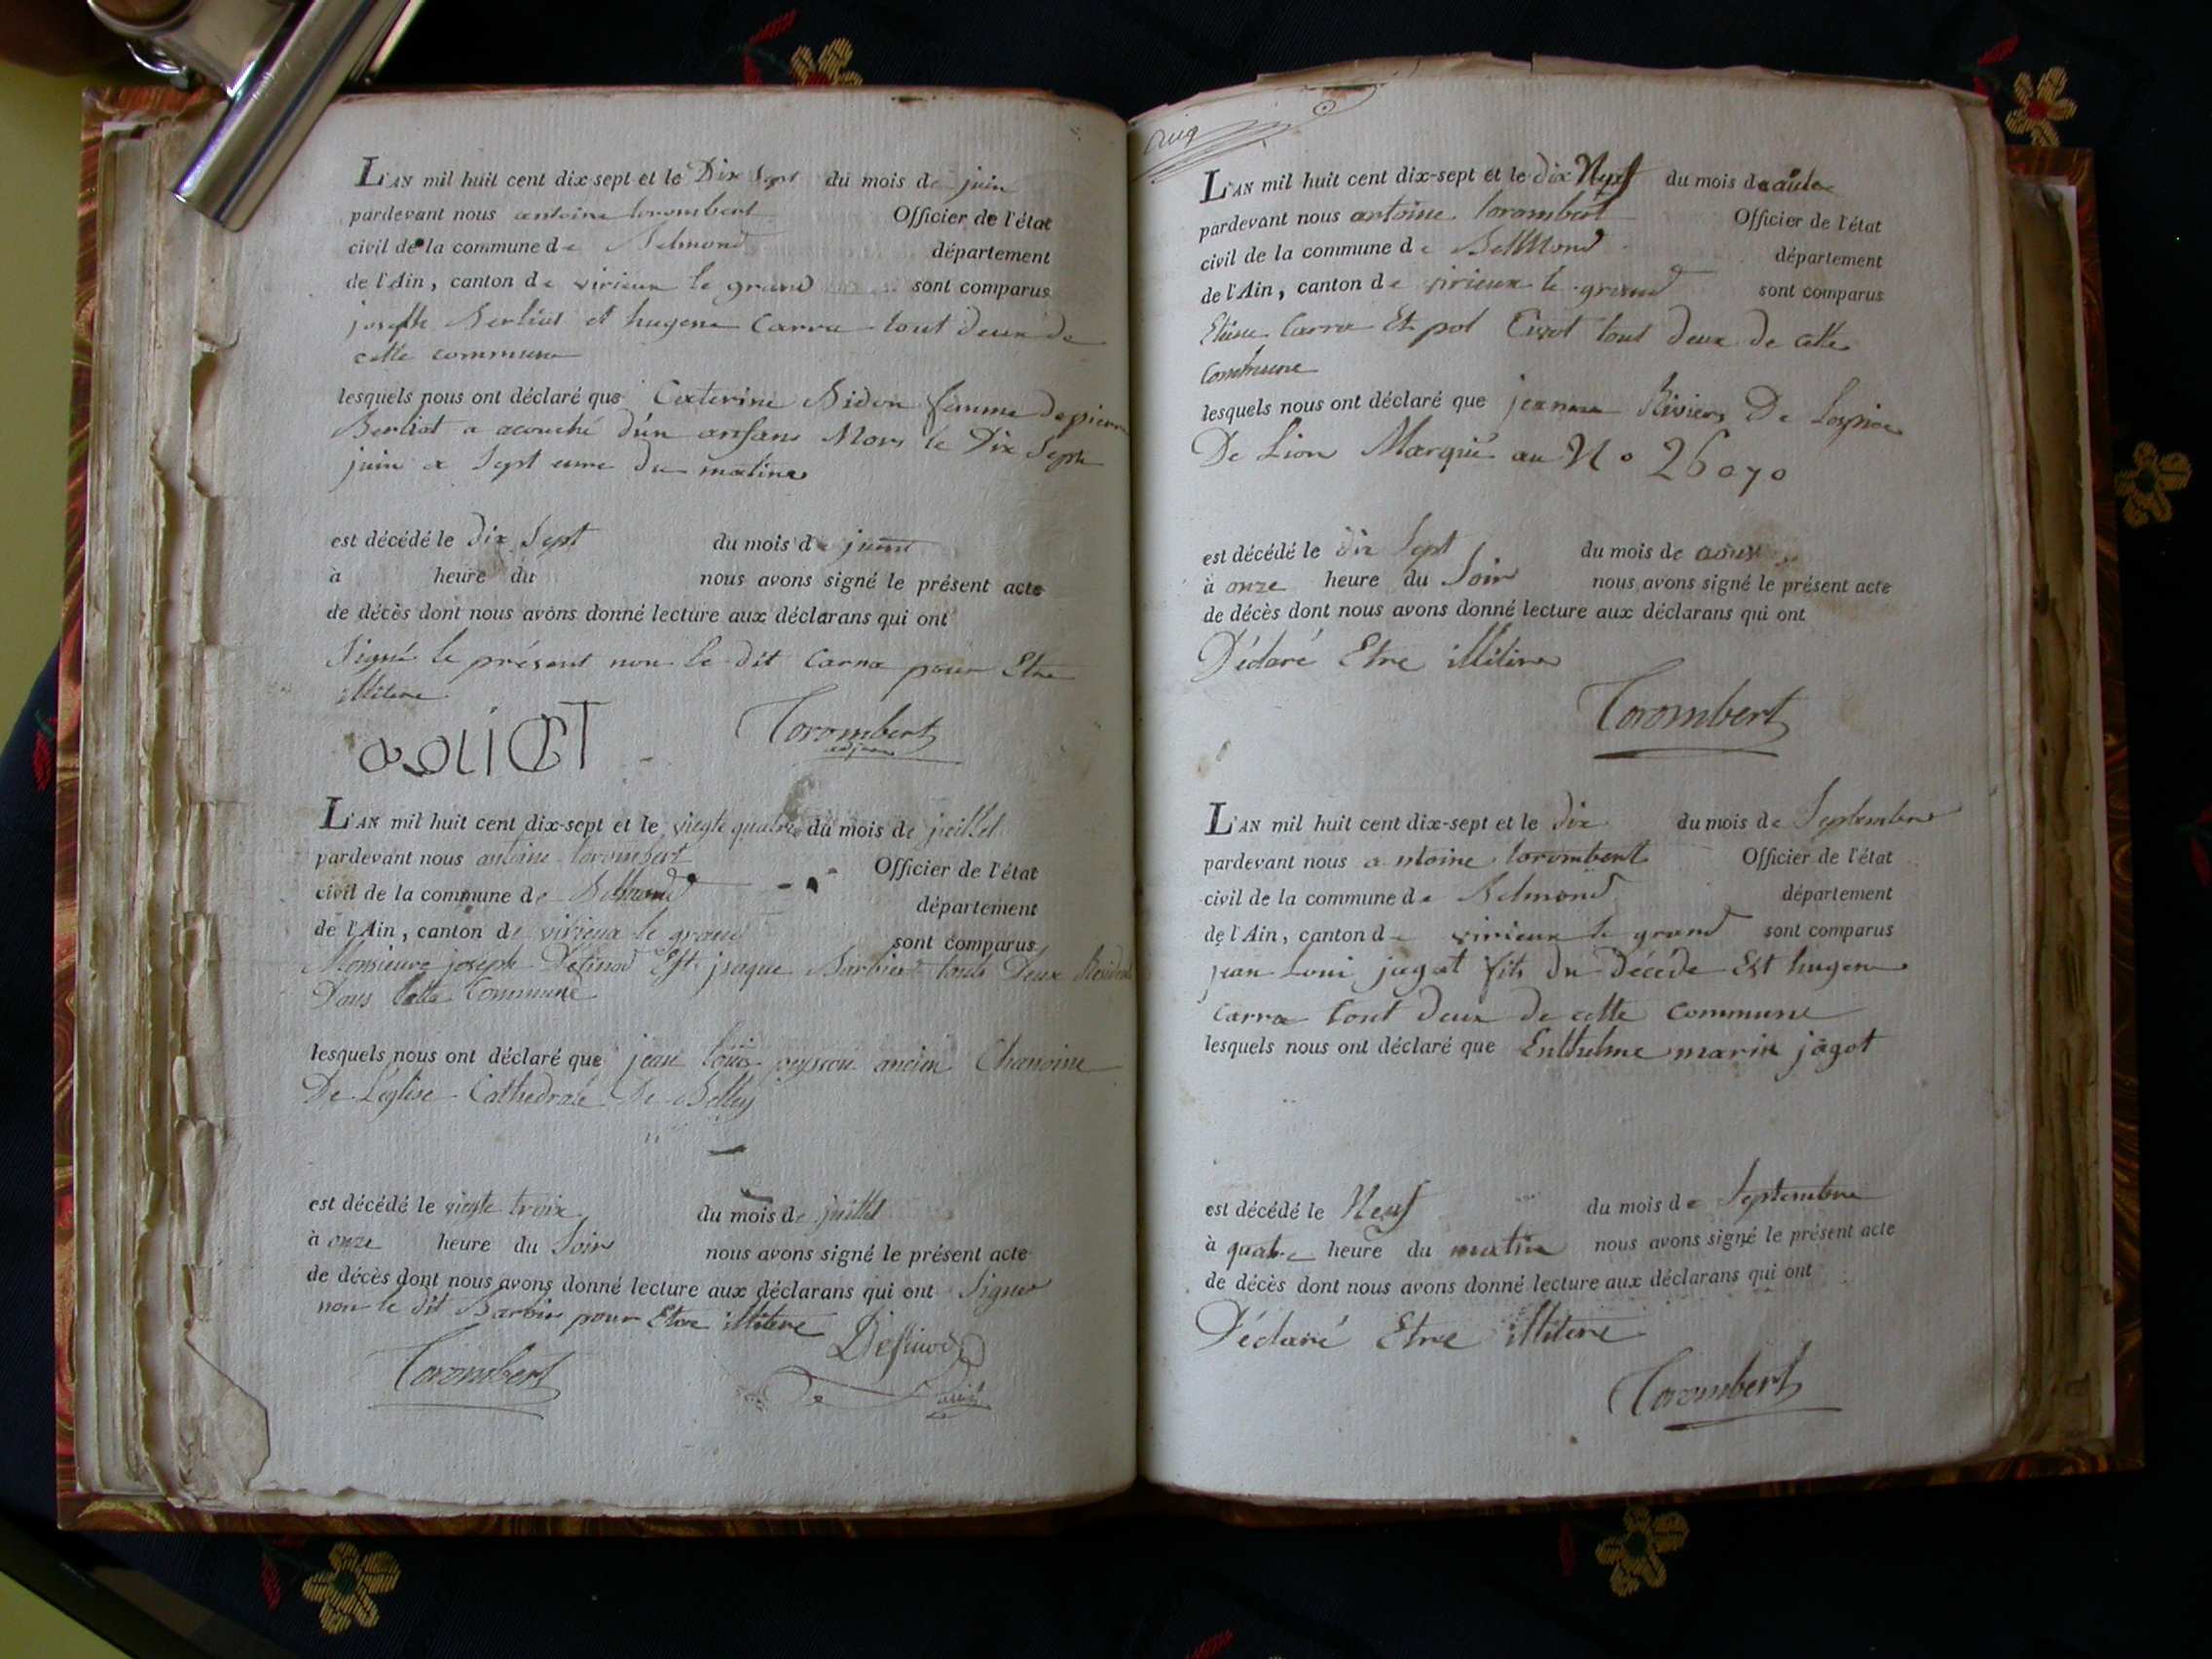 L'AN mil huit cent dix sept et le Dix Sept du mois de juin
pardevant nous antoine torombert Officier de l'état
civil de la commune de Belmond département
de l'Ain, canton de virieux le grand sont comparus
joseph Berliot et hugene Carra tout deux de
cette commune
lesquels nous ont déclaré que Caterine Bidon femme de pierre
Berliot a acouché d'un anfans Mors le Dix Sept
juin a Sept eure du matine
est décédé le dix Sept du mois de juin
à heure du nous avons signé le présent acte
de décès dont nous avons donné lecture aux déclarans qui ont
Signé le présent non le dit Carra pour Etre
illitere
Torombert
adjoint
L'AN mil huit cent dix-sept et le viegte quatre du mois de juillet
pardevant nous antoine torombert Officier de l'état
civil de la commune de Belmond département
de l'Ain, canton de virieux le grand sont comparus
Monsieure joseph Desinod Est jsaque Barbier touts Deux Residents
Dans Cette Commune
lesquels nous ont déclaré que jean louis peysson ancien Chanoine
De L'eglise Cathedrale De Belley
est décédé le viegte troix du mois de juillet
à onze heure du Soir nous avons signé le présent acte
de décès dont nous avons donné lecture aux déclarans qui ont Signer
non le dit Barbier pour Etre illitere
Torombert Desinod
L'AN mil huit cent dix-sept et le dix Neuf du mois de
pardevant nous antoine torombert Officier de l'état
civil de la commune de Bellmond département
de l'Ain, canton de virieux le grand sont comparus
Carra Et pol tout deux de cette
Commune
lesquels nous ont déclaré que jeanne Riviere De Lospice
De Lion Marqué au No 26070
est décédé le dix Sept du mois de aoust
à onze heure du Soir nous avons signé le présent acte
de décès dont nous avons donné lecture aux déclarans qui ont
Déclaré Etre illitere
Torombert
L'AN mil huit cent dix-sept et le dix du mois de Septembre
pardevant nous antoine torombert Officier de l'état
civil de la commune de Belmond département
de l'Ain, canton de virieux le grand sont comparus
jean Loui jagot fils du Décéde Est hugene
Carra tout deux de cette commune
lesquels nous ont déclaré que Enthelme marin jagot
est décédé le Neuf du mois de Septembre
à quatre heure du matin nous avons signé le présent acte
de décès dont nous avons donné lecture aux déclarans qui ont
Déclaré Etre illitere
Torombert